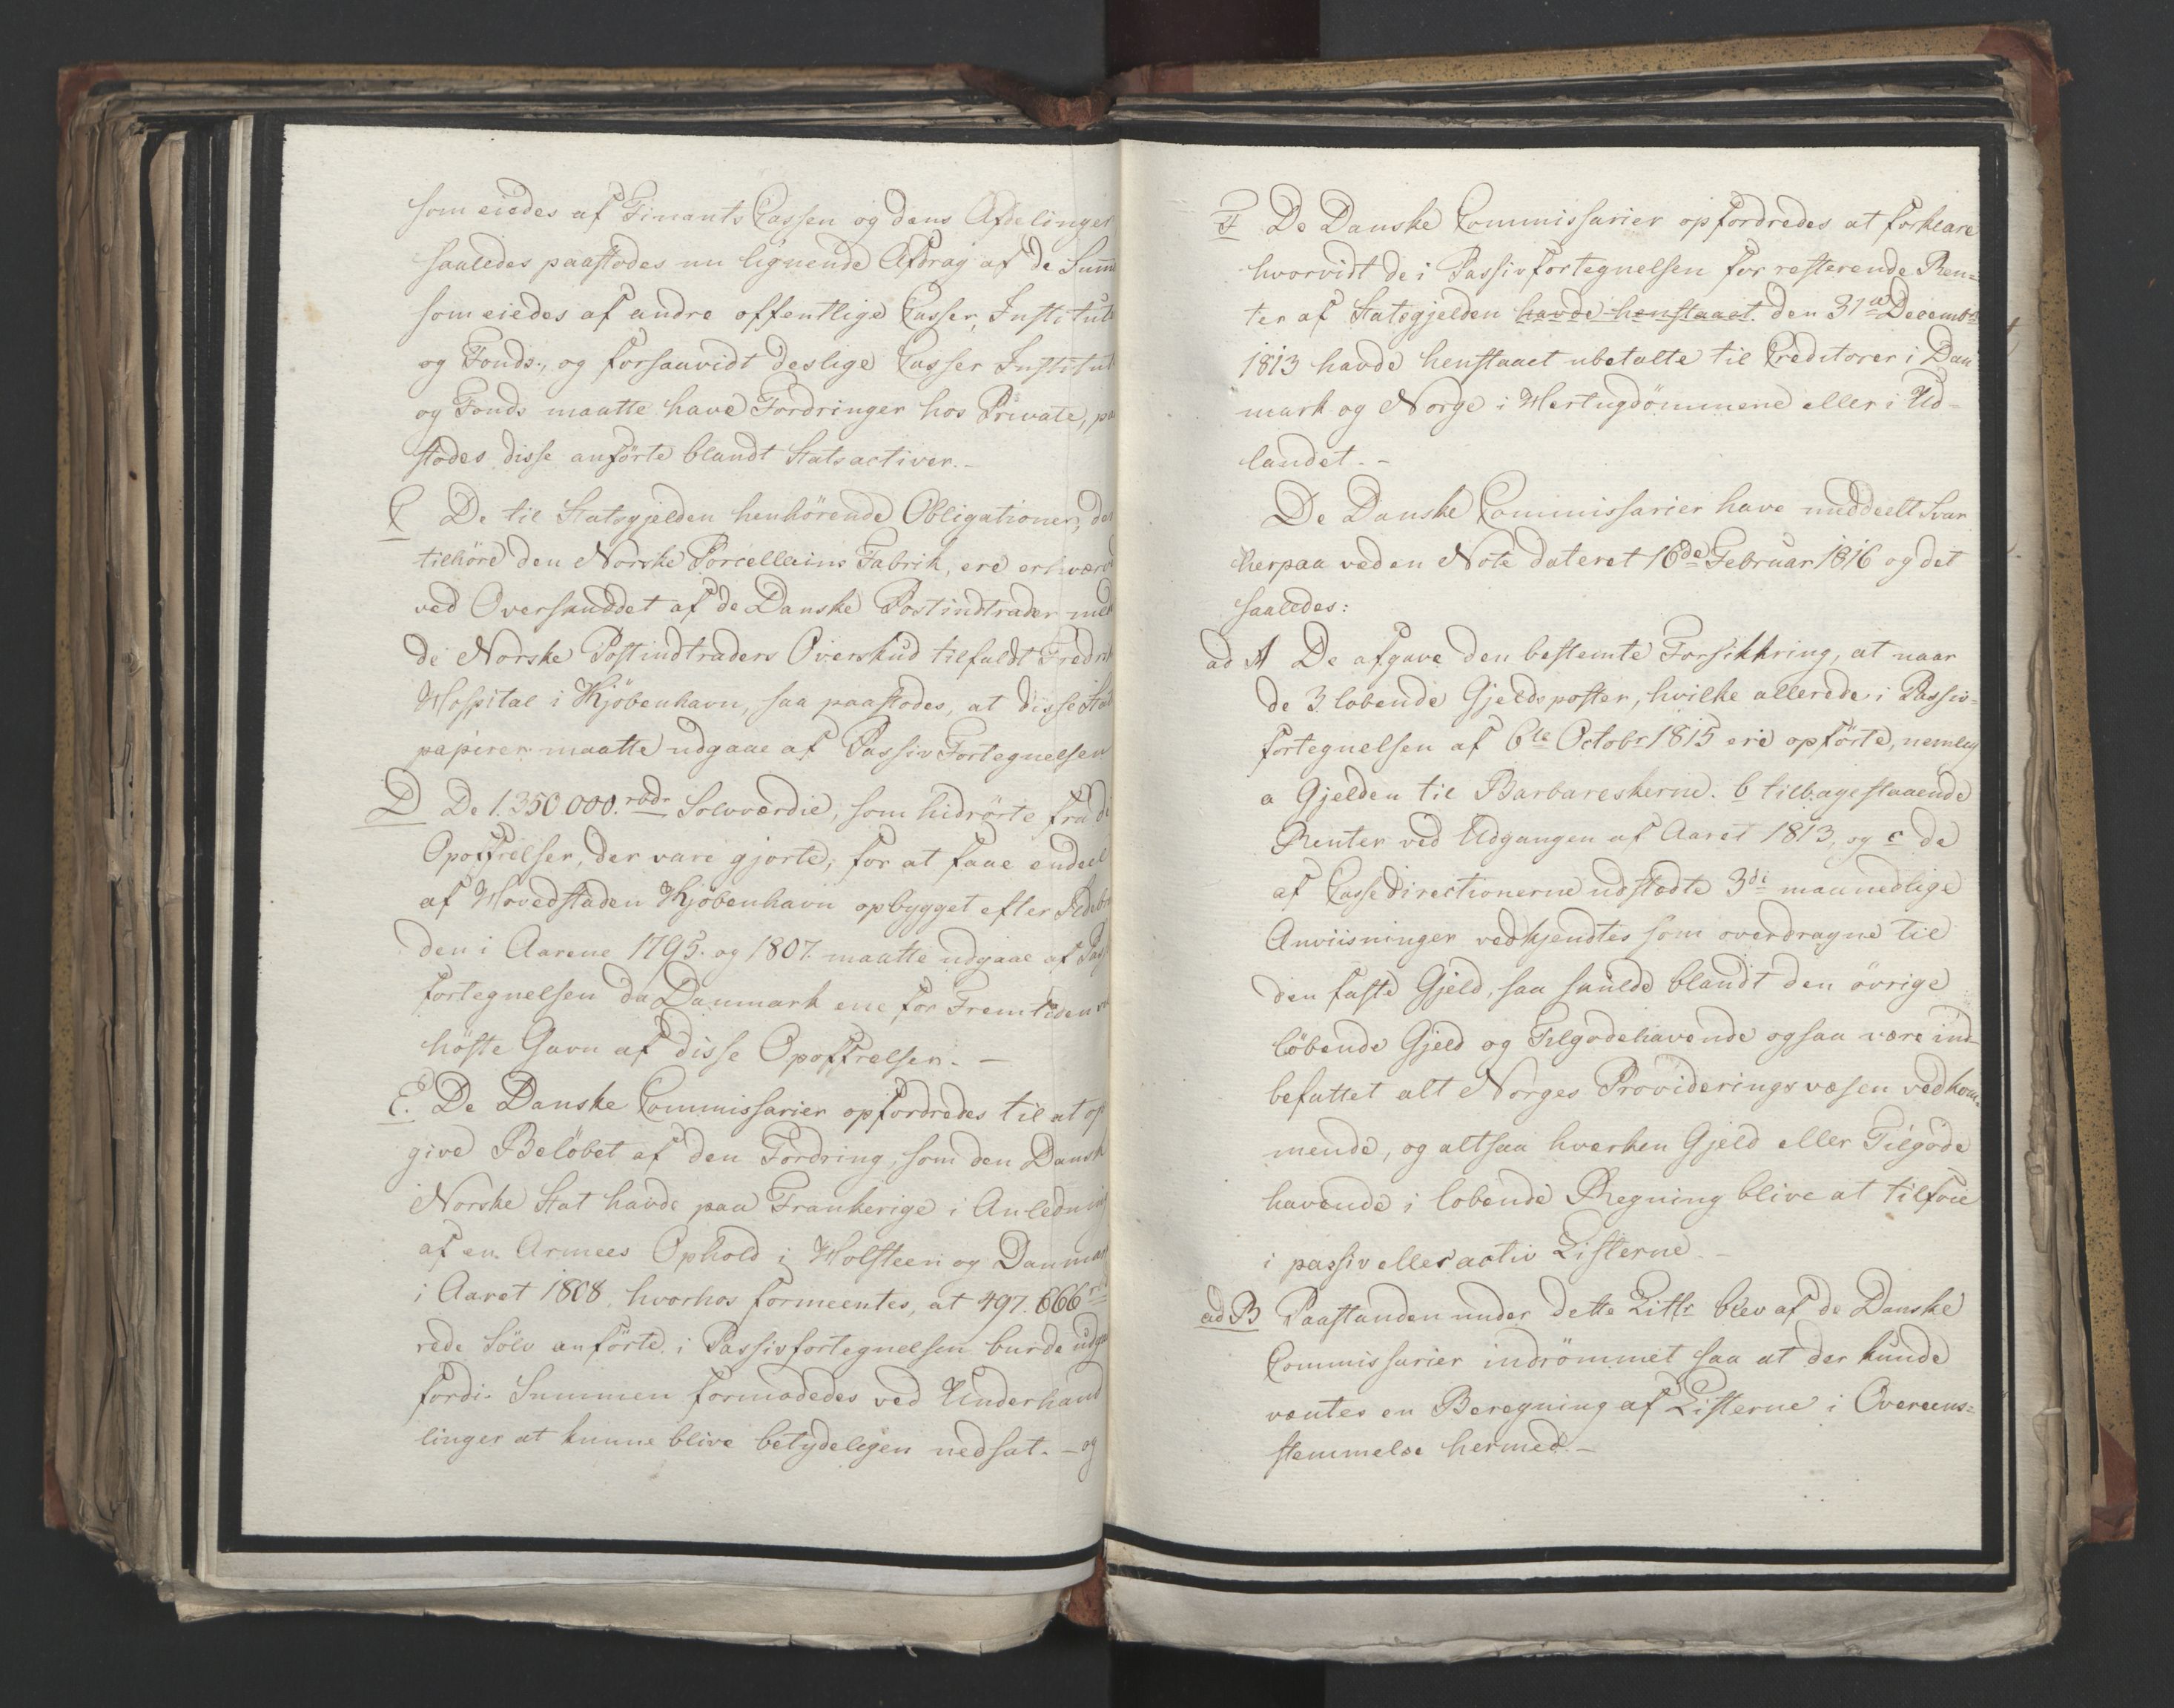 som eiedes af Finants Cassen og dens Afdelinger
saaledes paastodes nu lignende Afdrag af de Sum̄
som eiedes af andre offentlige Casser, Institut
og Fonds, og forsaavidt deslige Casser Institut
og Fonds maatte have Fordringer hos Private, pa
stodes disse anförte blandt Statsactiver. -
C De til Statsgjelden henhörende Obligationer, de
tilhöre den Norske Porcellains Fabrik, ere erhværv
ved Overskuddet af de Danske Postindtrader
de Norske Postindtraders Overskud tilfaldt Fredrik
Hospital i Kjöbenhavn, saa paastodes, at disse Stat
papirer maatte udgaae af Passiv Fortegnelsen
D De 1.350.000. rbdr Solvværdie, som hidrörte fra de
Opoffrelser, der vare gjorte, for at faae endeel
af Hovedstaden Kjöbenhavn opbygget efter Ildebr
den i Aarene 1795. og 1807. maatte udgaae af Pass
fortegnelsen da Danmark ene for Fremtiden
höste Gavn af disse Opoffrelser. -
E. De Danske Commissarier opfordredes til at op
give Belöbet af den Fordring, som den Dansk
Norske Stat havde paa Frankerige i Anledning
af en Armees Ophold i Holsteen og Danmark
i Aaret 1808, hvorhos formeentes, at 497.666
rede Sölv anförte i Passivfortegnelsen burde udga
fordi Summen formodedes ved Underhand
linger at kunne blive betydeligen nedsat. - og
F De Danske Commissarier opfordredes at forklare
hvorvidt de i Passivfortegnelsen for resterende Ren-
ter af Statsgjelden havde henstaaet den 31te Decembr
1813 havde henstaaet ubetalte til Creditorer i Dan
mark og Norge i Hertugdömmene eller i Ud-
landet. -
De Danske Commissarier have meddeelt Svar
herpaa ved en Note dateret 16de Februar 1816 og det
saaledes:
ad A De afgave den bestemte Forsikkring, at naar
de 3 lobende Gjeldsposter, hvilke allerede i Passiv-
fortegnelsen af 6te Octobr 1815 ere opförte, nemlig
a Gjelden til Barbareskerne. b tilbagestaaende
Renter ved Udgangen af Aaret 1813, og c de
af Cassedirectionerne udstædte 3de maanedlige
Anviisninger vedkjendtes som overdragne til
den faste Gjeld, saa skulde blandt den övrige
löbende Gjeld og Tilgodehavende ogsaa være ind-
befattet alt Norges Provideringsvæsen vedkom-
mende, og altsaa hverken Gjeld eller Tilgode
havende i lobende Regning blive at tilfoie
i passiv eller activ Listerne. -
ad B Paastanden under dette Littr blev af de Danske
Commissarier indrömmet saa at der kunde
ventes en Beregning af Listerne i Overeens-
stemmelse hermed. -